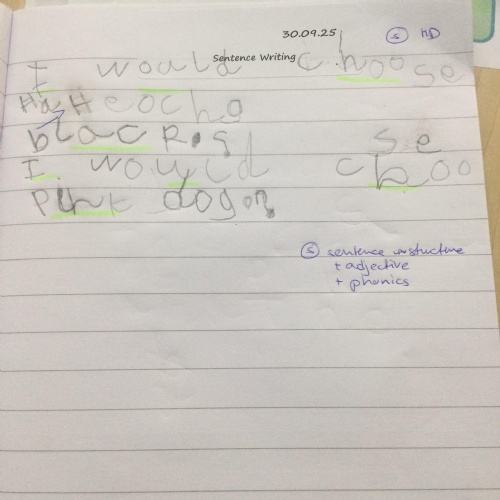 30.09.25
S HD
Sentence Writing
I would choose
Ha
blac
I would choose
Pink dogon
S sentence structure
+ adjective
+ phonics